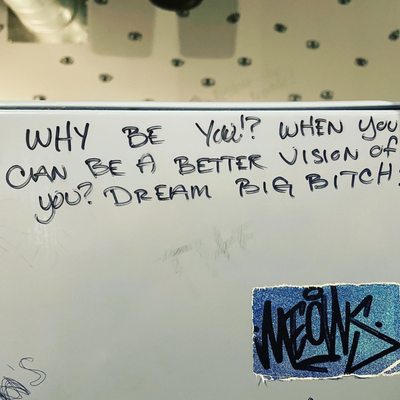 WHY BE YOU!? WHEN YOU
CAN BE A BETTER VISION OF
YOU? DREAM BIG BITCH!
MEOWS